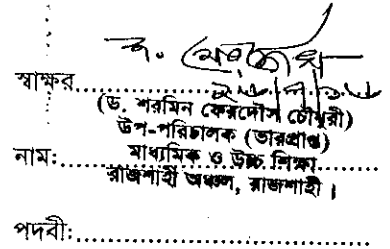 স্বাক্ষর....................
(ড. শরমিন ফেরদৌস চৌধুরী)
উপ-পরিচালক (ভারপ্রাপ্ত)
নামঃ.......... মাধ্যমিক ও উচ্চ শিক্ষা
রাজশাহী অঞ্চল, রাজশাহী।
পদবীঃ....................